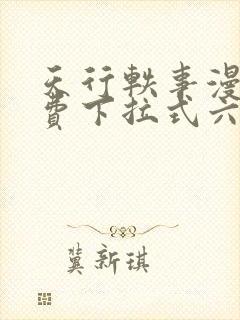 天行軼事漫
費下拉式六
冀新琪